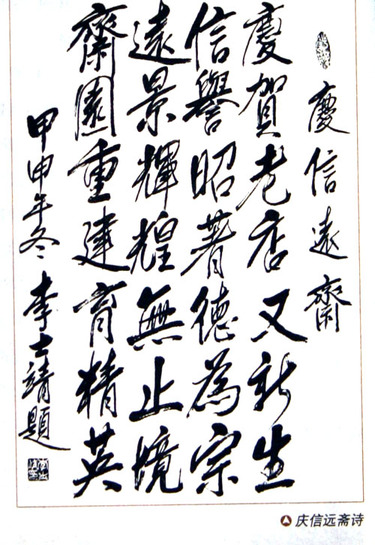 慶信遠齋
慶賀老店又新生
信譽昭著德為宗
遠景輝煌無止境
齋園重建育精英
甲申年冬 李士靖題
庆信远斋诗